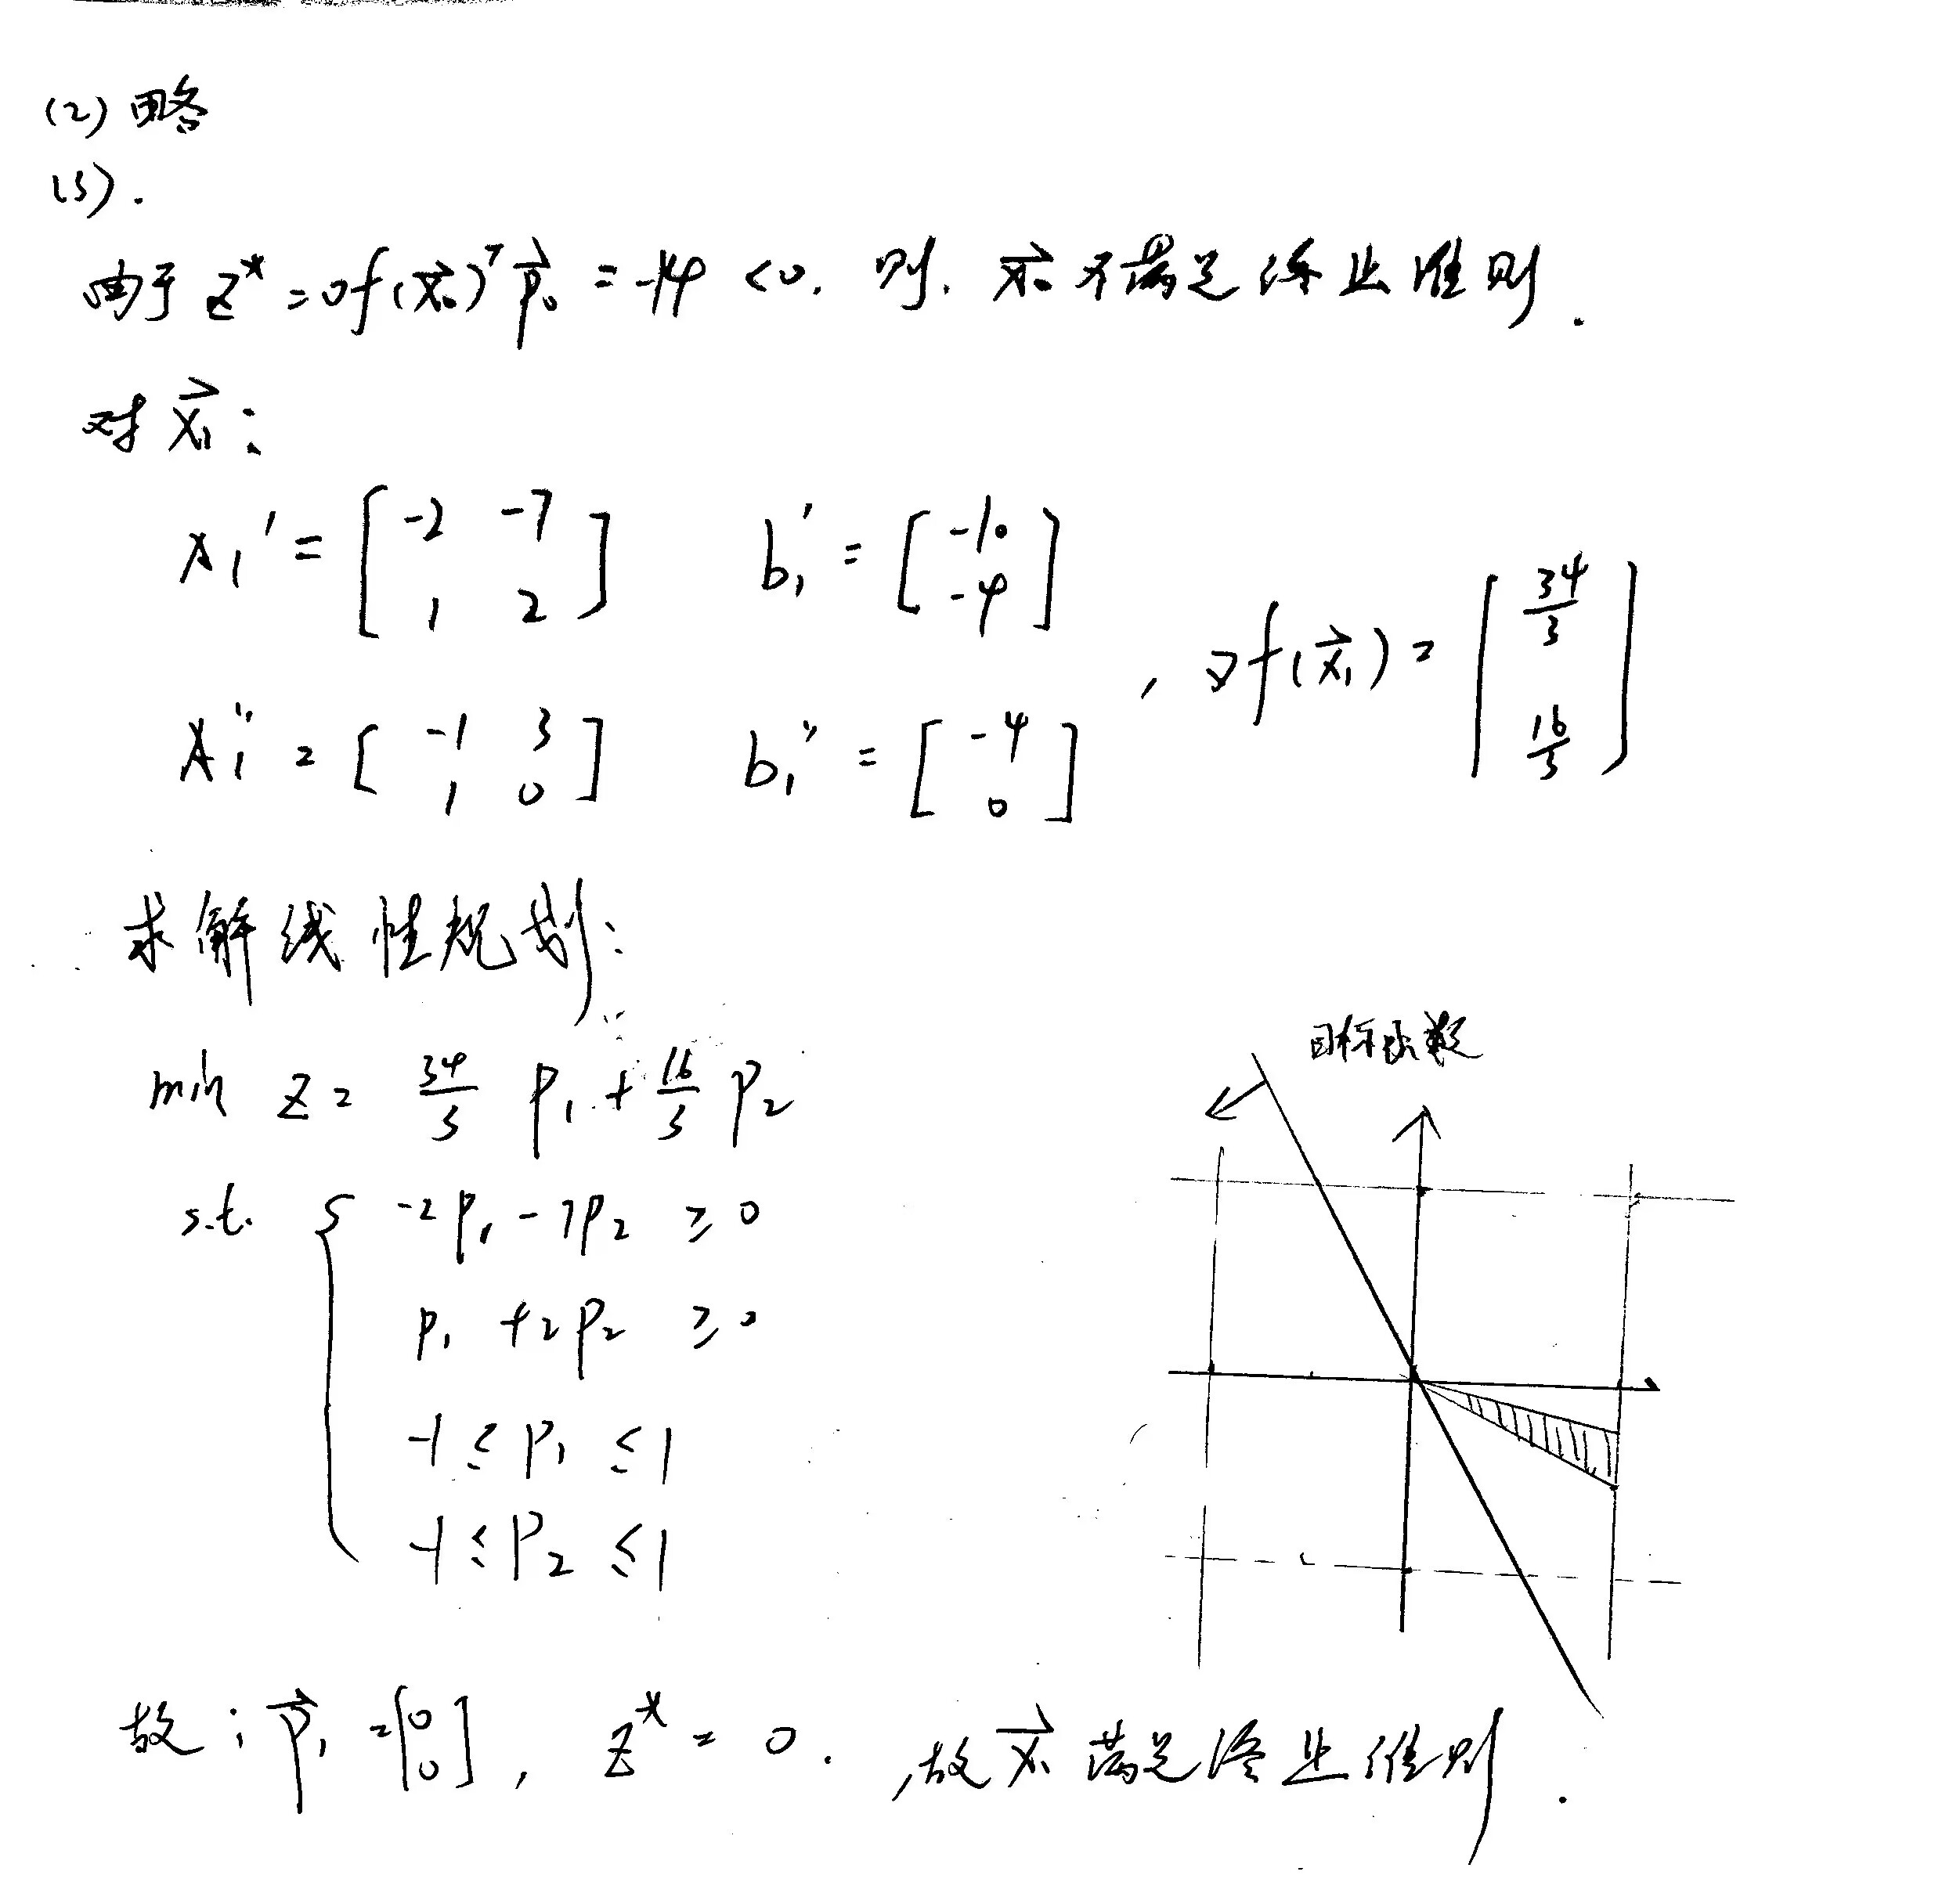 (2) 略
(3).
由于 z* = ∇f(x⃗₀)ᵀ p⃗₀ = -14 < 0. 则. x⃗₀ 不满足终止准则.
对 x⃗₁:
A₁' = [ -2 -7 ; 1 2 ] b₁' = [ -10 ; -4 ]
A₁'' = [ -1 3 ; 1 0 ] b₁'' = [ -4 ; 0 ] , ∇f(x⃗₁) = [ 34/3 ; 16/3 ]
求解线性规划:
min z = 34/3 p₁ + 16/3 p₂
s.t. { -2p₁ - 7p₂ ≥ 0
p₁ + 2p₂ ≥ 0
-1 ≤ p₁ ≤ 1
-1 ≤ p₂ ≤ 1
目标函数
故: p⃗₁ = [ 0 ; 0 ], z* = 0. ,故 x⃗₁ 满足终止准则.